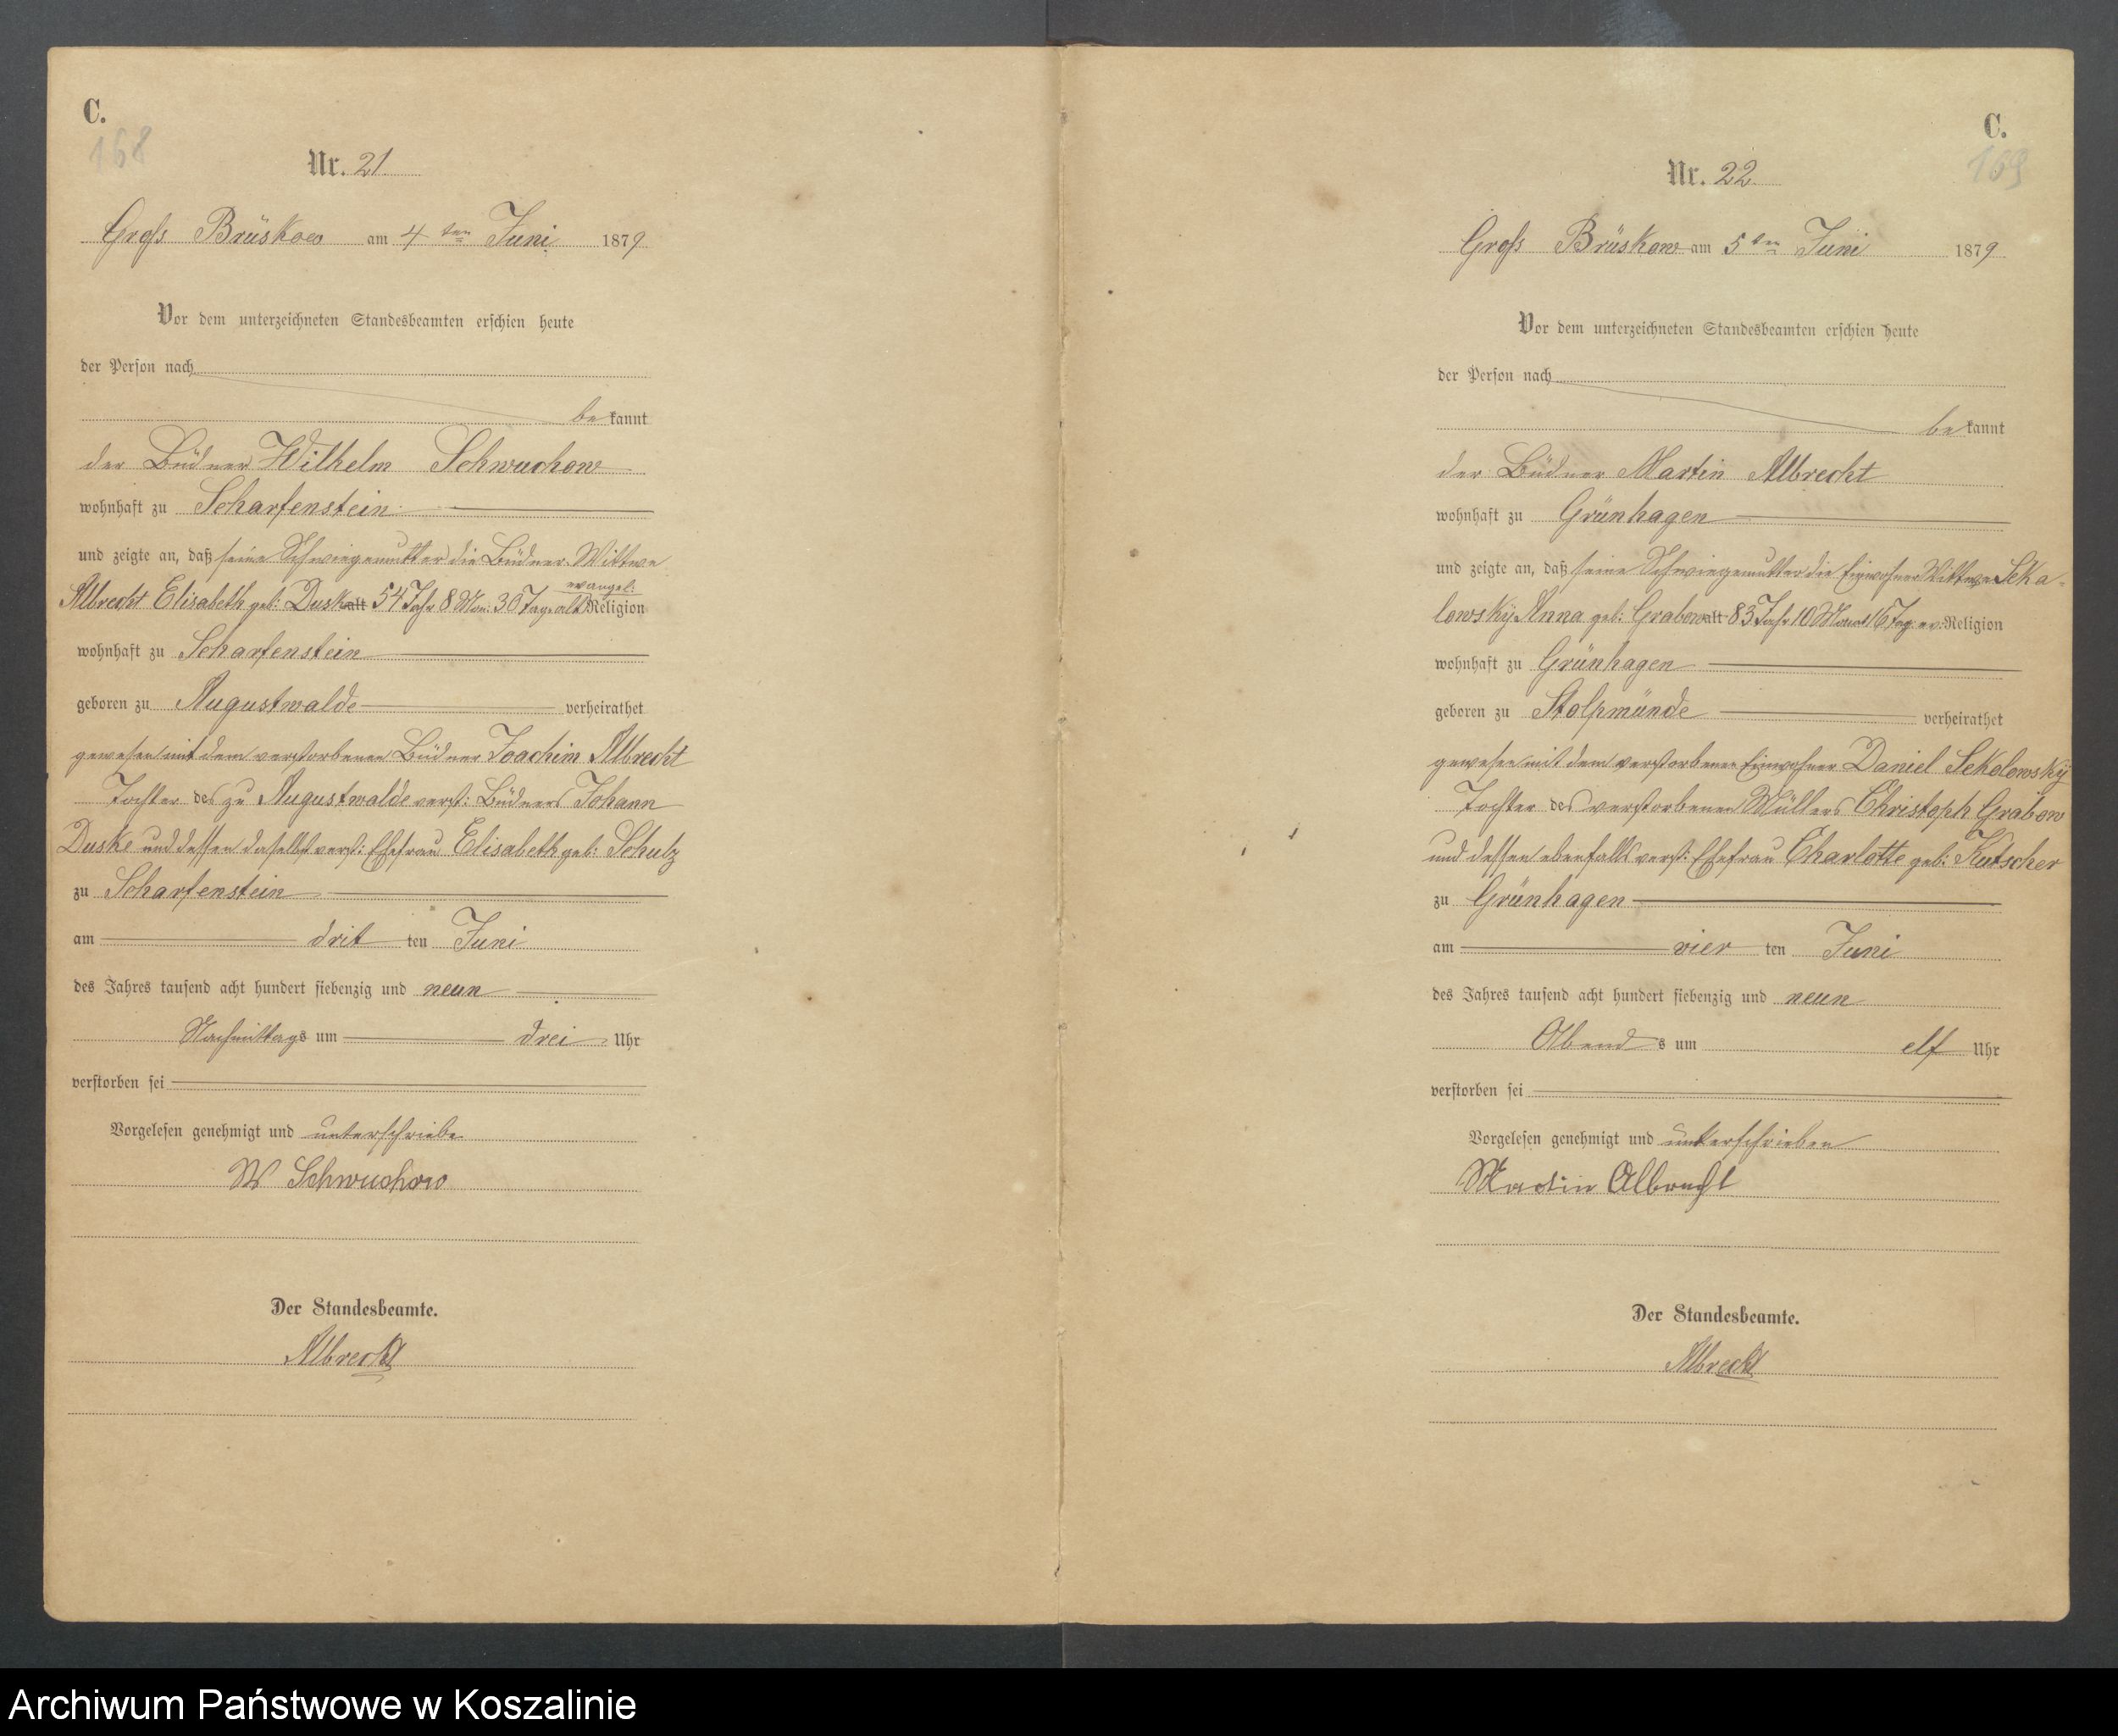 C.
168
Nr. 21.
Groß Brüskow am 4ten Juni 1879
Vor dem unterzeichneten Standesbeamten erschien heute
der Person nach
bekannt
der Büdner Wilhelm Schwuchow
wohnhaft zu Scharfenstein
und zeigte an, daß seine Schwiegemutter die Büdner-Wittwe
evangel:
Albrecht Elisabeth geb: Dusk alt 54 Jahr 8 Mon: 30 Tage alt Religion
wohnhaft zu Scharfenstein
geboren zu Augustwalde verheirathet
gewesen mit dem verstorbenen Büdner Joachim Albrecht
Tochter des zu Augustwalde verst: Büdners Johann
Duske und dessen daselbst verst: Ehefrau Elisabeth geb: Schulz
zu Scharfenstein
am drit ten Juni
des Jahres tausend acht hundert siebenzig und neun
Nachmittags um drei Uhr
verstorben sei
Vorgelesen genehmigt und unterschriebe
W Schwuchow
Der Standesbeamte.
Albrecht
C.
169
Nr. 22
Groß Brüskow am 5ten Juni 1879
Vor dem unterzeichneten Standesbeamten erschien heute
der Person nach
bekannt
der Büdner Martin Albrecht
wohnhaft zu Grünhagen
und zeigte an, daß seine Schwiegemutter die Einwohner Wittwe Scka-
lowsky Anna geb: Grabow alt 83 Jahr 10 Monat 16 Tag ev: Religion
wohnhaft zu Grünhagen
geboren zu Stolpmünde verheirathet
gewesen mit dem verstorbenen Einwohner Daniel Sekolowsky
Tochter des verstorbenen Müllers Christoph Grabow
und dessen ebenfalls verst: Ehefrau Charlotte geb: Kutscher
zu Grünhagen
am vier ten Juni
des Jahres tausend acht hundert siebenzig und neun
Abend s um elf Uhr
verstorben sei
Vorgelesen genehmigt und unterschrieben
Martin Albrecht
Der Standesbeamte.
Albrecht
Archiwum Państwowe w Koszalinie